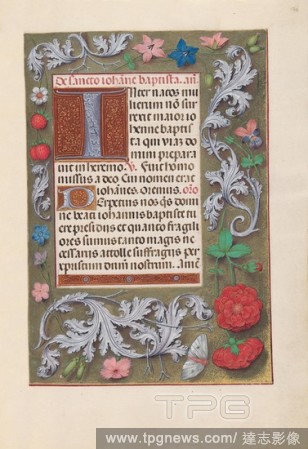 De sancto iohāne baptista. añ
Inter natos mu
lierum nō sur
rexit maior io
hanne baptis
ta qui viaz do
mini prepara
uit in heremo. ℣. Fuit homo
missus a deo Cui nomen erat
iohānes. oremus. oro
Perpetuis nos qs̄ domi
ne beati iohannis baptiste tu
ere presidiis et quanto fragili
ores sumus tanto magis ne
cessariis attolle suffragiis per
xpistum dnm nostrum. amē
TPG
www.tpgnews.com/達志影像